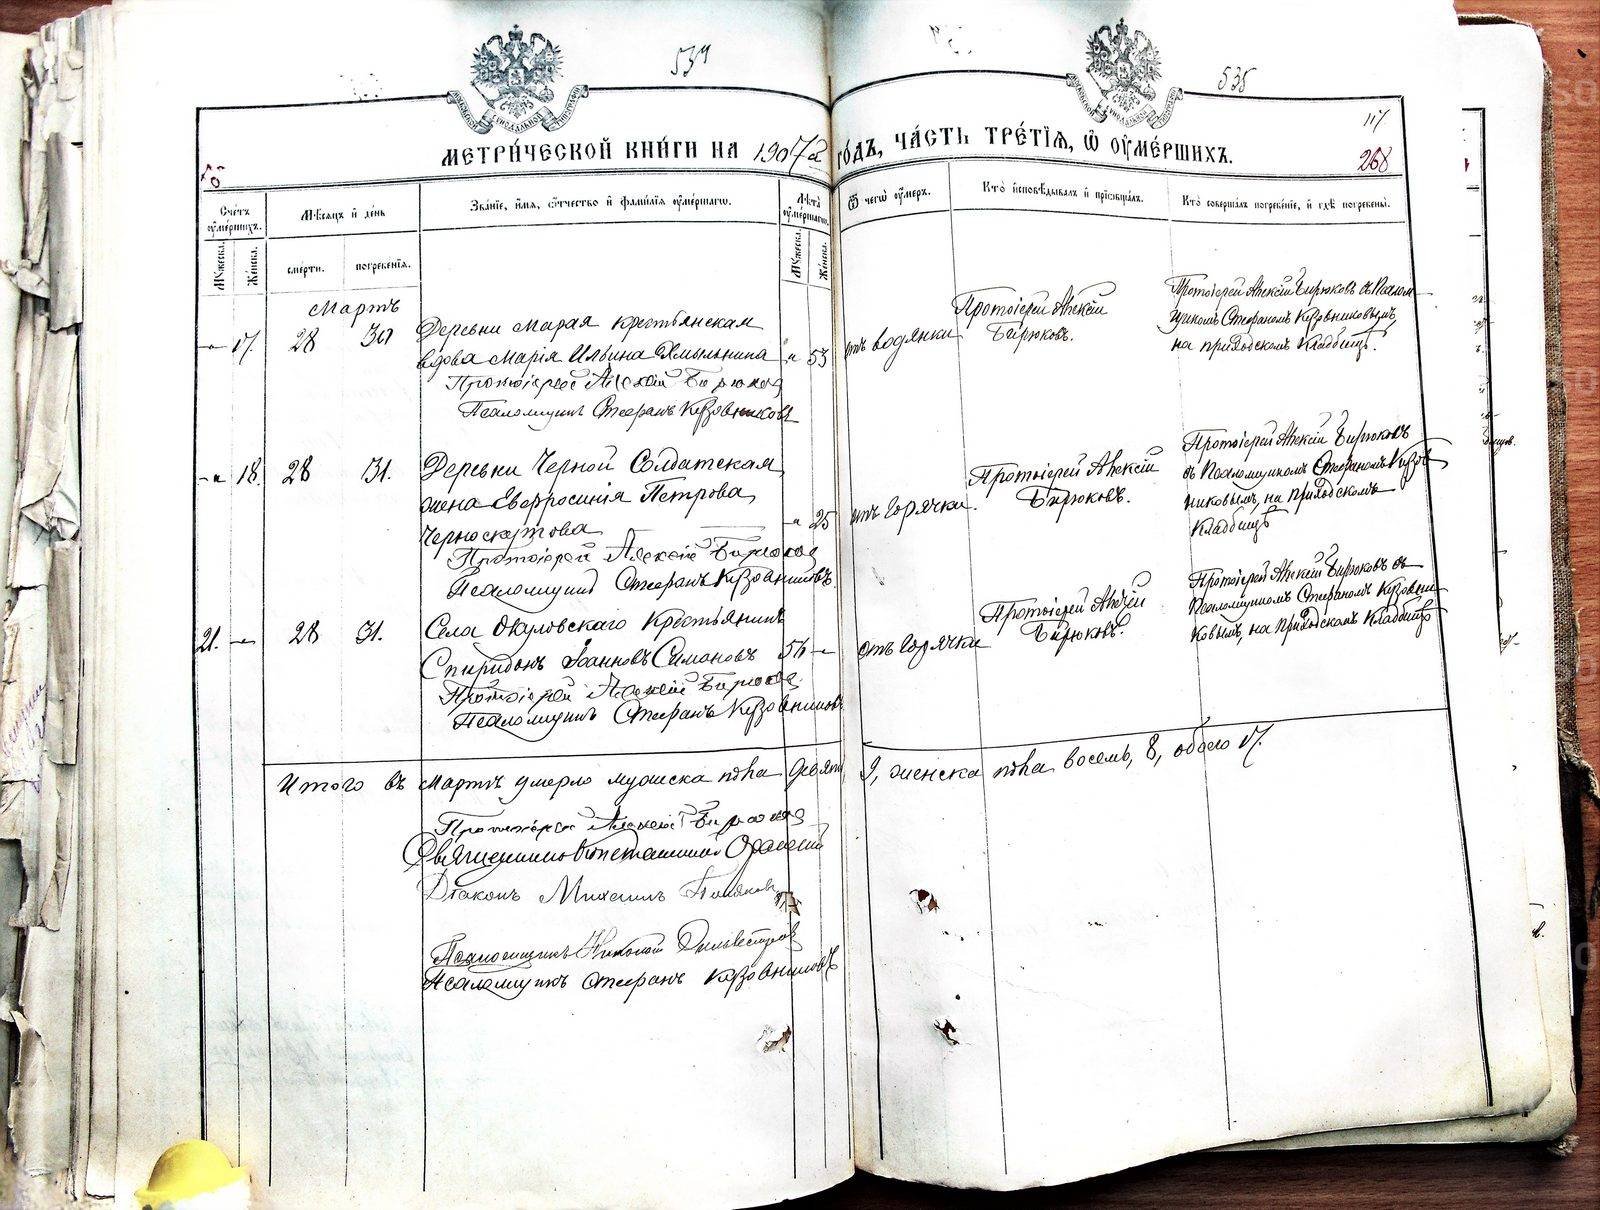 534
535
117
268
МЕТРИ́ЧЕСКОЙ КНИ́ГИ НА 1907й ГО́ДЪ, ЧА́СТЬ ТРЕ́ТІЯ, Ѿ ОУМЕ́РШИХЪ.
Счетъ оуме́ршихъ.
Мѣсяцъ и день
Зва́ніе, и́мя, о́тчество и фами́лія оуме́ршагѡ.
Лѣта оуме́ршагѡ.
Ѿ чегѡ̀ оу́меръ.
Кто̀ исповѣ́дывалъ и пріобща́лъ.
Кто̀ соверша́лъ погребе́ніе, и гдѣ̀ погребены̀.
Мужеска.
Женска.
сме́рти.
погребе́нія.
Мужеска.
Женска.
Мартъ
17. 28 30 Деревни Марая крестьянская
вдова Марія Ильина 53
Протоіерей Алексій Бирюковъ
Псаломщикъ Стефанъ Кузовниковъ
отъ водянки
Протоіерей Алексій
Бирюковъ.
Протоіерей Алексій Бирюковъ съ Псалом-
щикомъ Стефаномъ Кузовниковымъ,
на приходскомъ Кладбищѣ.
18. 28 31. Деревни Черной Солдатская
жена Евфросинія Петрова
Черноскутова 25
Протоіерей Алексій Бирюковъ
Псаломщикъ Стефанъ Кузовниковъ.
отъ горячки.
Протоіерей Алексій
Бирюковъ.
Протоіерей Алексій Бирюковъ
съ Псаломщикомъ Стефаномъ Кузов-
никовымъ, на приходскомъ
Кладбищѣ
21. 28 31. Села Окуловскаго Крестьянинъ
Спиридонъ Іоанновъ Симановъ
Протоіерей Алексій Бирюковъ
Псаломщикъ Стефанъ Кузовниковъ
отъ горячки
Протоіерей Алексій
Бирюковъ.
Протоіерей Алексій Бирюковъ съ
Псаломщикомъ Стефаномъ Кузовни-
ковымъ, на приходскомъ Кладбищѣ
Итого въ Мартѣ умерло мужска пола девять 9, женска пола восемь, 8, обоего 17.
Протоіерей Алексій Бирюковъ
Священникъ Константинъ
Діаконъ Михаилъ
Псаломщикъ Николай Сильвестровъ
Псаломщикъ Стефанъ Кузовниковъ